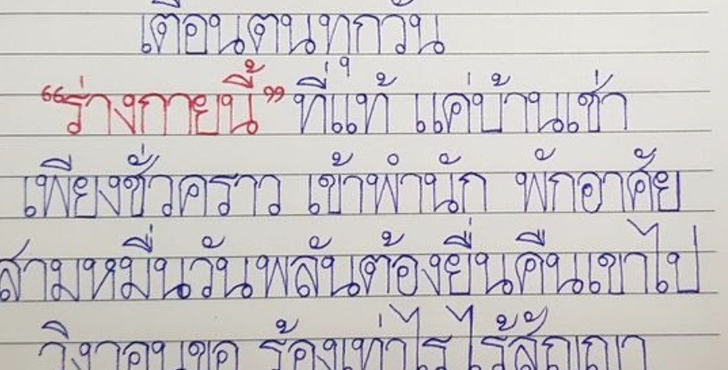 เตือนตนทุกวัน
“ร่างกายนี้” ที่แท้ แค่บ้านเช่า
เพียงชั่วคราว เข้าพำนัก พักอาศัย
สามหมื่นวันพลันต้องยื่นคืนเขาไป
วิงวอนขอ ร้องเท่าไร ไร้สัญญา